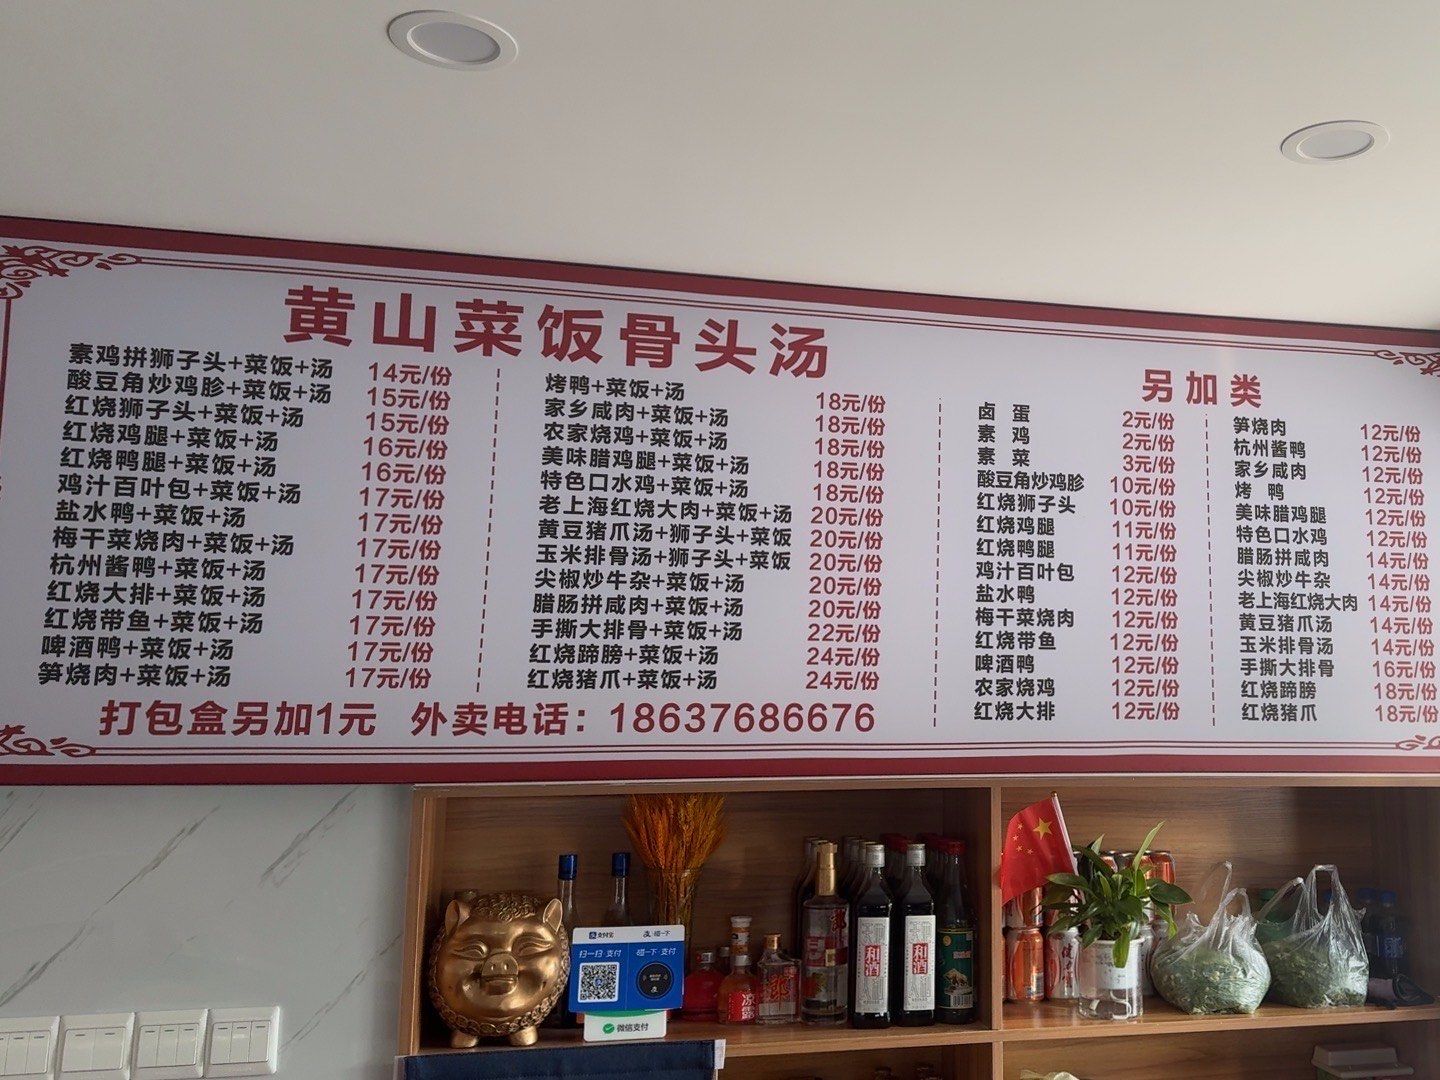 黄山菜饭骨头汤
素鸡拼狮子头+菜饭+汤 14元/份
酸豆角炒鸡胗+菜饭+汤 15元/份
红烧狮子头+菜饭+汤 15元/份
红烧鸡腿+菜饭+汤 16元/份
红烧鸭腿+菜饭+汤 16元/份
鸡汁百叶包+菜饭+汤 17元/份
盐水鸭+菜饭+汤 17元/份
梅干菜烧肉+菜饭+汤 17元/份
杭州酱鸭+菜饭+汤 17元/份
红烧大排+菜饭+汤 17元/份
红烧带鱼+菜饭+汤 17元/份
啤酒鸭+菜饭+汤 17元/份
笋烧肉+菜饭+汤 17元/份
烤鸭+菜饭+汤 18元/份
家乡咸肉+菜饭+汤 18元/份
农家烧鸡+菜饭+汤 18元/份
美味腊鸡腿+菜饭+汤 18元/份
特色口水鸡+菜饭+汤 18元/份
老上海红烧大肉+菜饭+汤 20元/份
黄豆猪爪汤+狮子头+菜饭 20元/份
玉米排骨汤+狮子头+菜饭 20元/份
尖椒炒牛杂+菜饭+汤 20元/份
腊肠拼咸肉+菜饭+汤 20元/份
手撕大排骨+菜饭+汤 22元/份
红烧蹄膀+菜饭+汤 24元/份
红烧猪爪+菜饭+汤 24元/份
打包盒另加1元 外卖电话：18637686676
另加类
卤蛋 2元/份
素鸡 2元/份
素菜 3元/份
酸豆角炒鸡胗 10元/份
红烧狮子头 10元/份
红烧鸡腿 11元/份
红烧鸭腿 11元/份
鸡汁百叶包 12元/份
盐水鸭 12元/份
梅干菜烧肉 12元/份
红烧带鱼 12元/份
啤酒鸭 12元/份
农家烧鸡 12元/份
红烧大排 12元/份
笋烧肉 12元/份
杭州酱鸭 12元/份
家乡咸肉 12元/份
烤鸭 12元/份
美味腊鸡腿 12元/份
特色口水鸡 12元/份
腊肠拼咸肉 14元/份
尖椒炒牛杂 14元/份
老上海红烧大肉 14元/份
黄豆猪爪汤 14元/份
玉米排骨汤 14元/份
手撕大排骨 16元/份
红烧蹄膀 18元/份
红烧猪爪 18元/份
支付宝 碰一下
扫一扫 支付 碰一下 支付
微信支付
和酒
和酒